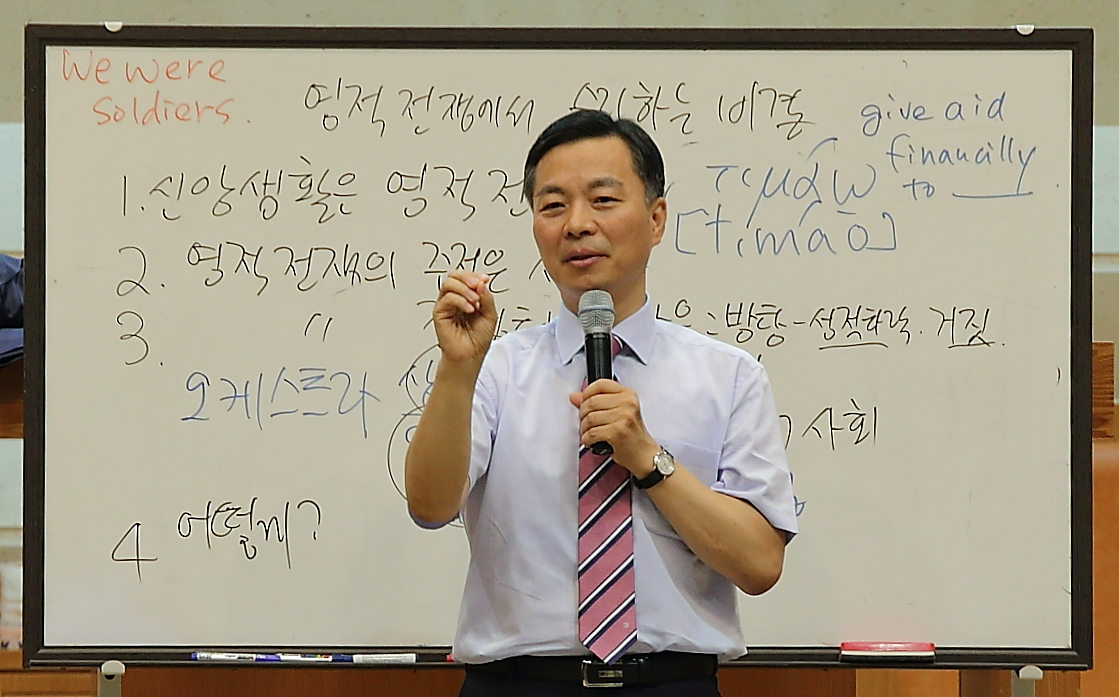 We were
soldiers.
영적 전쟁에서 하는 비결
give aid
financilly
to
1. 신앙생활은 영적 전
τιμάω
[timaō]
2. 영적전쟁의 주적은
3. 〃 은 : 방탕-성적타락. 거짓.
오케스트라
사회
4 어떻게?